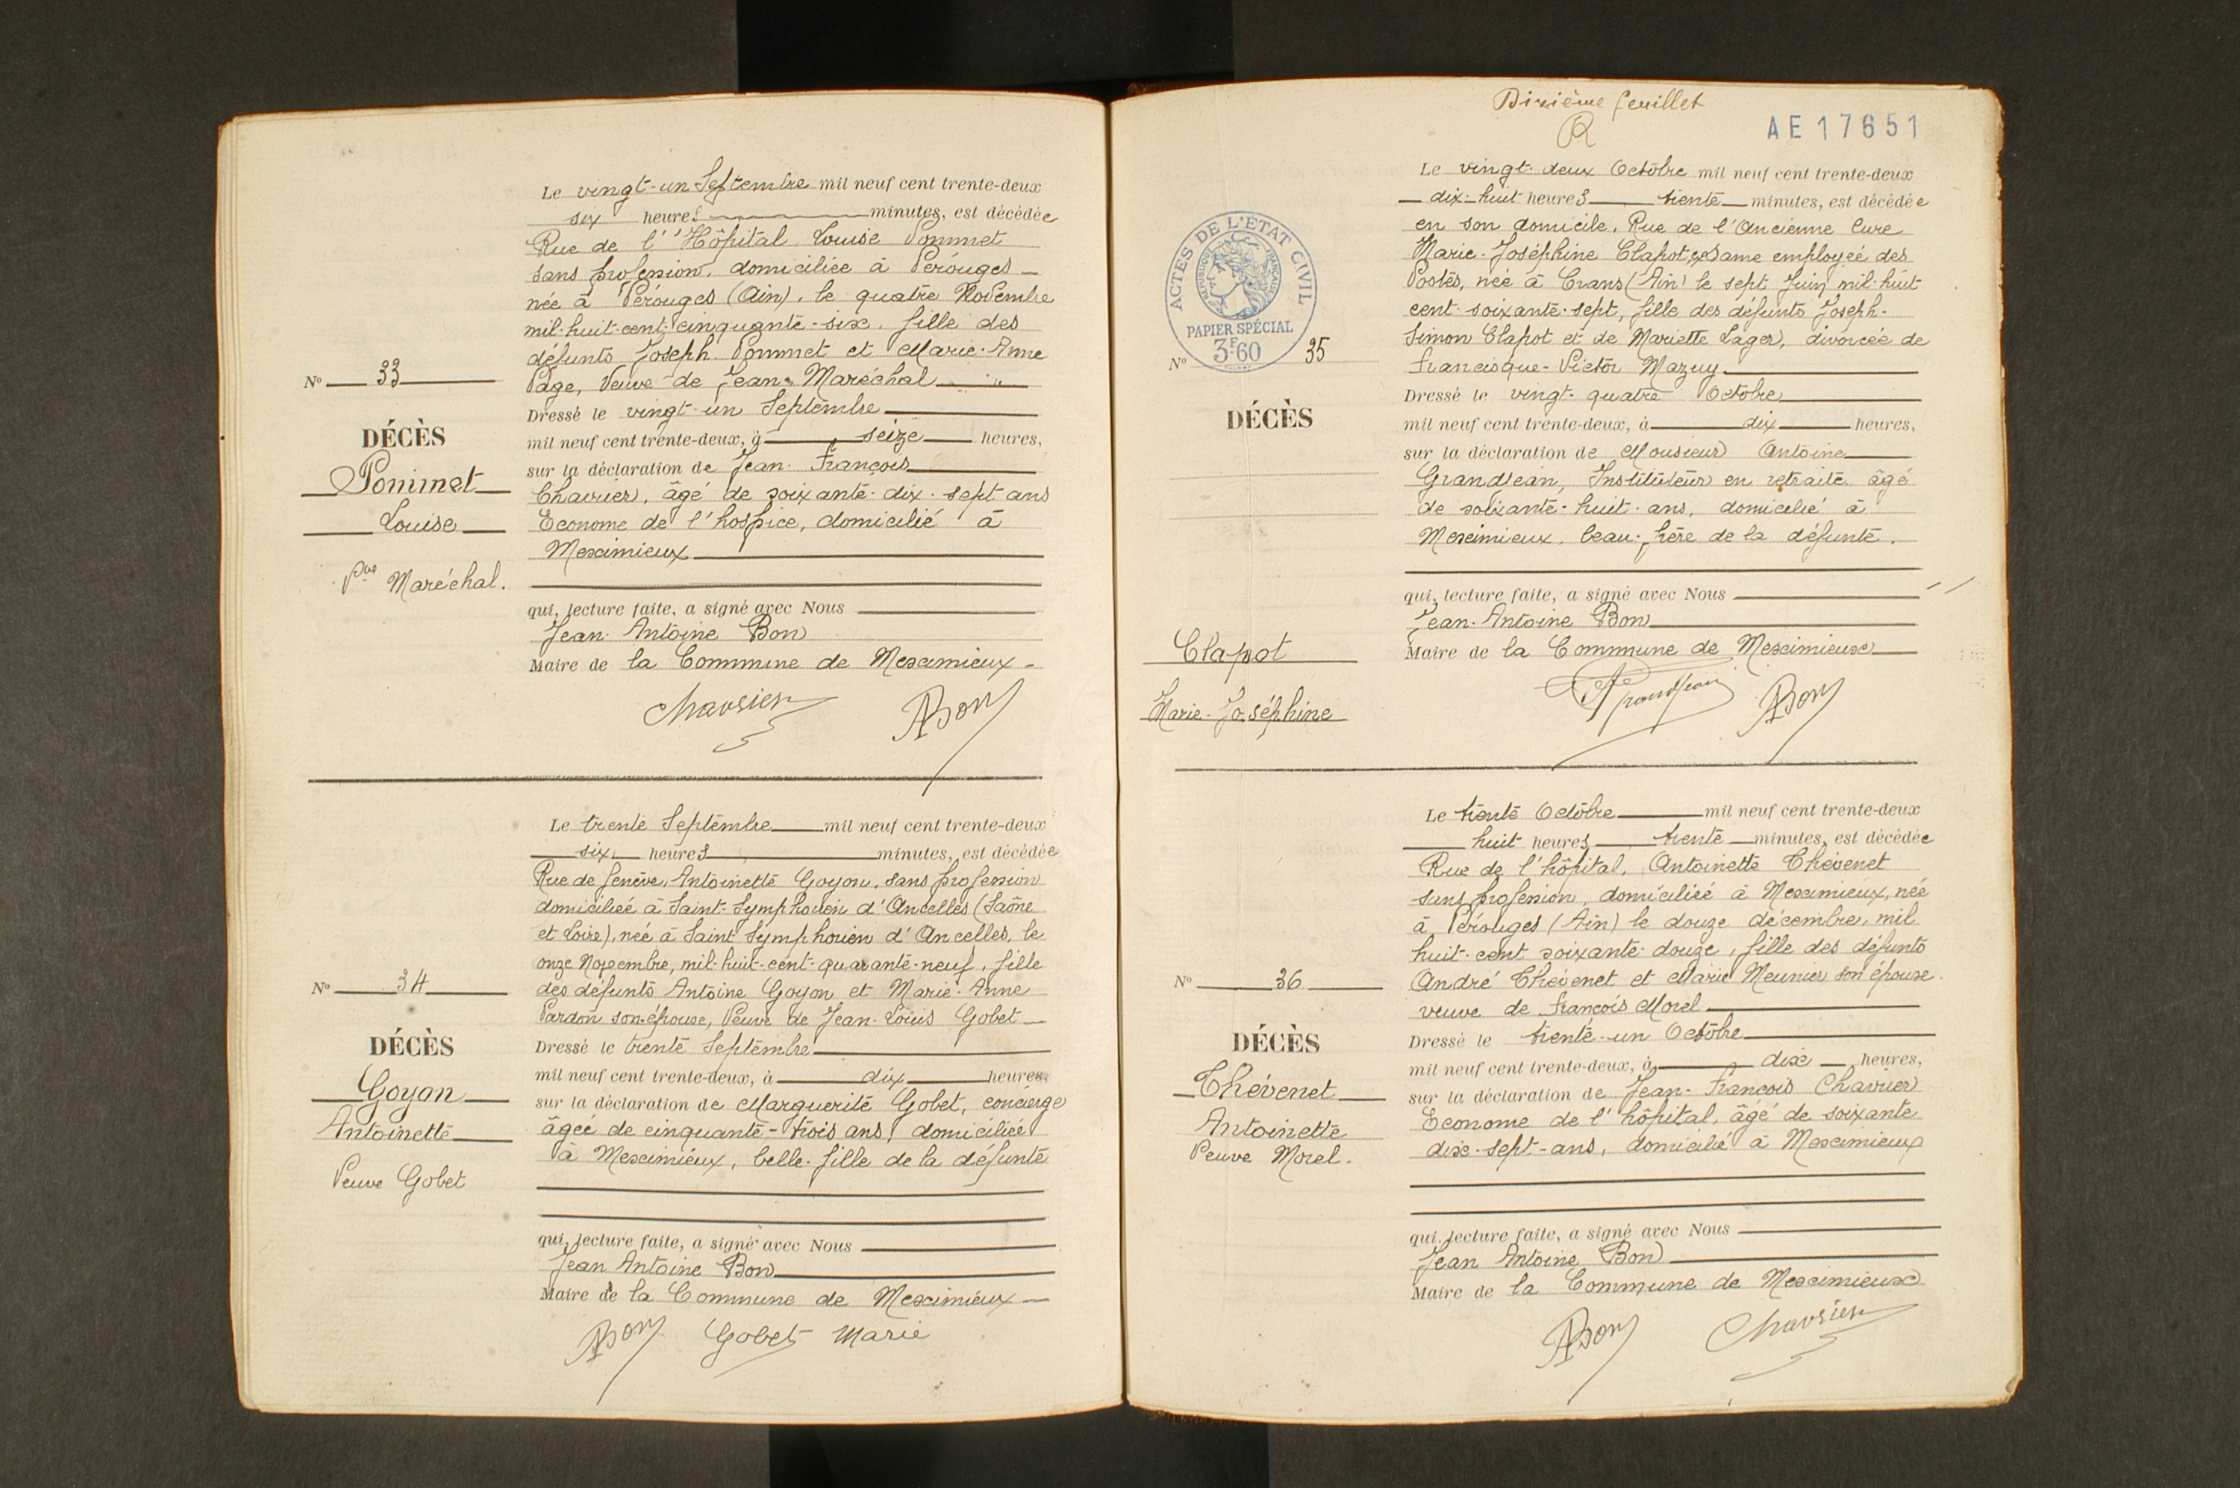 Le vingt-un Septembre mil neuf cent trente-deux
six heures minutes, est décédée
Rue de l'Hôpital Louise Pommet
sans profession, domiciliée à Pérouges
née à Pérouges (Ain), le quatre Novembre
mil-huit-cent-cinquante-six, fille des
défunts Joseph Pommet et Marie-Anne
Page, Veuve de Jean Maréchal
Dressé le vingt-un Septembre
mil neuf cent trente-deux, à seize heures,
sur la déclaration de Jean-François
Chavrier, âgé de soixante-dix-sept ans
Econome de l'hospice, domicilié à
Meximieux
qui, lecture faite, a signé avec Nous
Jean-Antoine Bon
Maire de la Commune de Meximieux
Chavrier ABon
No 33
DÉCÈS
Pommet
Louise
Vve Maréchal.
Le trente Septembre mil neuf cent trente-deux
six heures minutes, est décédée
Rue de Genève, Antoinette Goyon, sans profession
domiciliée à Saint-Symphorien d'Ancelles (Saône
et Loire), née à Saint Symphorien d'Ancelles, le
onze Novembre, mil-huit-cent-quarante-neuf, fille
des défunts Antoine Goyon et Marie-Anne
Pardon son épouse, Veuve de Jean-Louis Gobet
Dressé le trente Septembre
mil neuf cent trente-deux, à dix heures,
sur la déclaration de Marguerite Gobet, concierge
âgée de cinquante-trois ans, domiciliée
à Meximieux, belle-fille de la défunte
qui, lecture faite, a signé avec Nous
Jean Antoine Bon
Maire de la Commune de Meximieux
ABon Gobet Marie
No 34
DÉCÈS
Goyon
Antoinette
Veuve Gobet
Dixième feuillet
R
AE17651
ACTES DE L'ETAT CIVIL
REPUBLIQUE FRANÇAISE
PAPIER SPÉCIAL
3F60
No 35
DÉCÈS
Clapot
Marie-Joséphine
Le vingt-deux Octobre mil neuf cent trente-deux
dix-huit heures trente minutes, est décédée
en son domicile, Rue de l'Ancienne Cure
Marie-Joséphine Clapot, Dame employée des
Postes, née à Crans (Ain) le sept Juin mil-huit
cent-soixante-sept, fille des défunts Joseph-
Simon Clapot et de Mariette Lager, divorcée de
Francisque-Victor Mazuy
Dressé le vingt-quatre Octobre
mil neuf cent trente-deux, à dix heures,
sur la déclaration de Monsieur Antoine
Grandjean, Instituteur en retraite âgé
de soixante-huit-ans, domicilié à
Meximieux, beau-frère de la défunte.
qui, lecture faite, a signé avec Nous
Jean-Antoine Bon
Maire de la Commune de Meximieux
Grandjean ABon
Le trente Octobre mil neuf cent trente-deux
huit heures trente minutes, est décédée
Rue de l'hôpital, Antoinette Thévenet
sans profession, domiciliée à Meximieux, née
à Pérouges (Ain) le douze décembre, mil
huit-cent soixante-douze, fille des défunts
André Thévenet et Marie Meunier son épouse.
veuve de François Morel
Dressé le trente-un Octobre
mil neuf cent trente-deux, à dix heures,
sur la déclaration de Jean-François Chavrier
Econome de l'hôpital, âgé de soixante
dix-sept-ans, domicilié à Meximieux
qui, lecture faite, a signé avec Nous
Jean Antoine Bon
Maire de la Commune de Meximieux
ABon Chavrier
No 36
DÉCÈS
Thévenet
Antoinette
Veuve Morel.